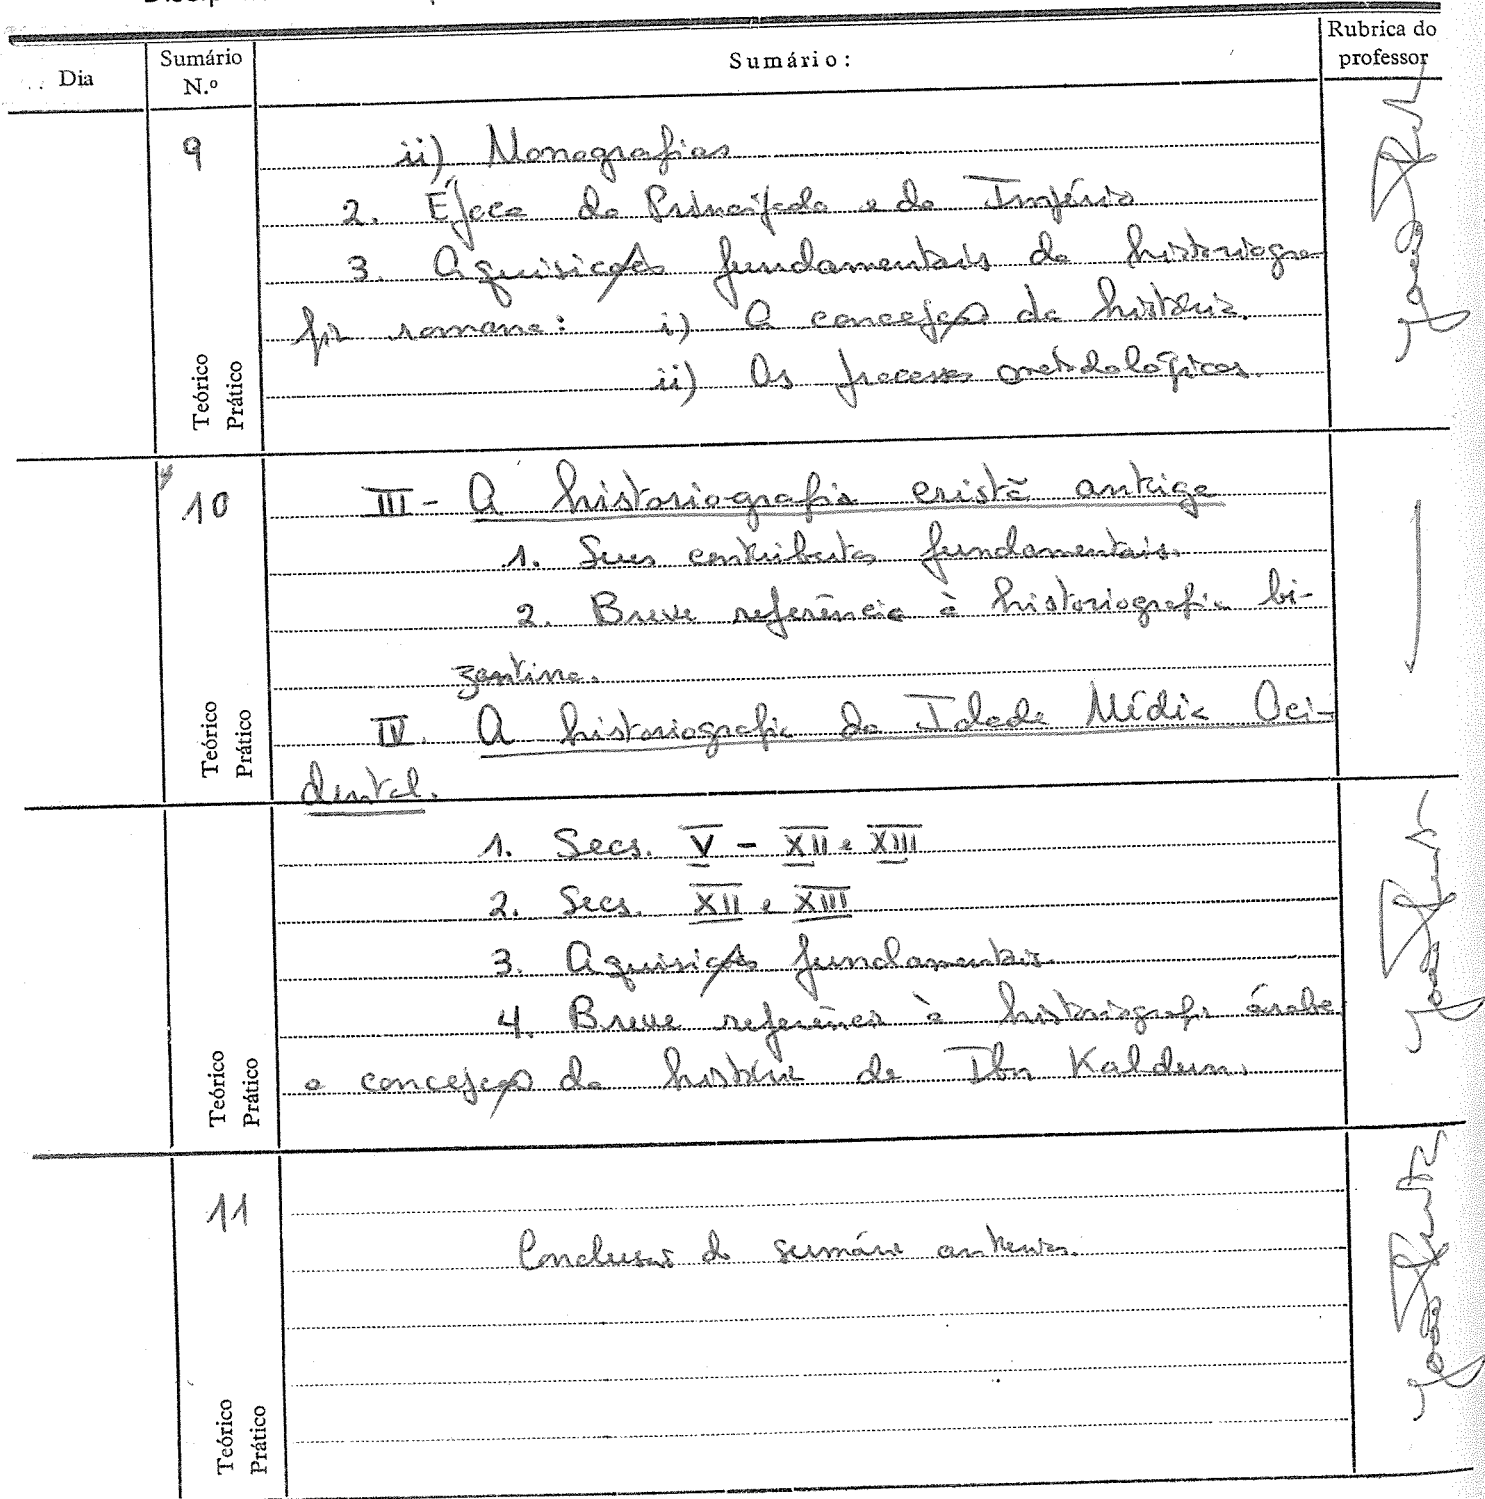 Dia
Sumário N.º
Sumário:
Rubrica do professor
9
ii) Monografias
2. Época do Principado e do Império
3. Aquisições fundamentais da historiogra-
fia romana: i) A concepção da história.
ii) Os processos metodológicos.
Teórico
Prático
10
III - A historiografia cristã antiga
1. Seus contributos fundamentais.
2. Breve referência à historiografia bi-
zantina.
IV. A historiografia da Idade Média Oci-
dental.
Teórico
Prático
1. Secs. V - XII e XIII
2. Secs. XII e XIII
3. Aquisições fundamentais.
4. Breve referência à historiografia árabe
a concepção da história de Ibn Kaldun.
Teórico
Prático
11
Conclusão do sumário anterior.
Teórico
Prático